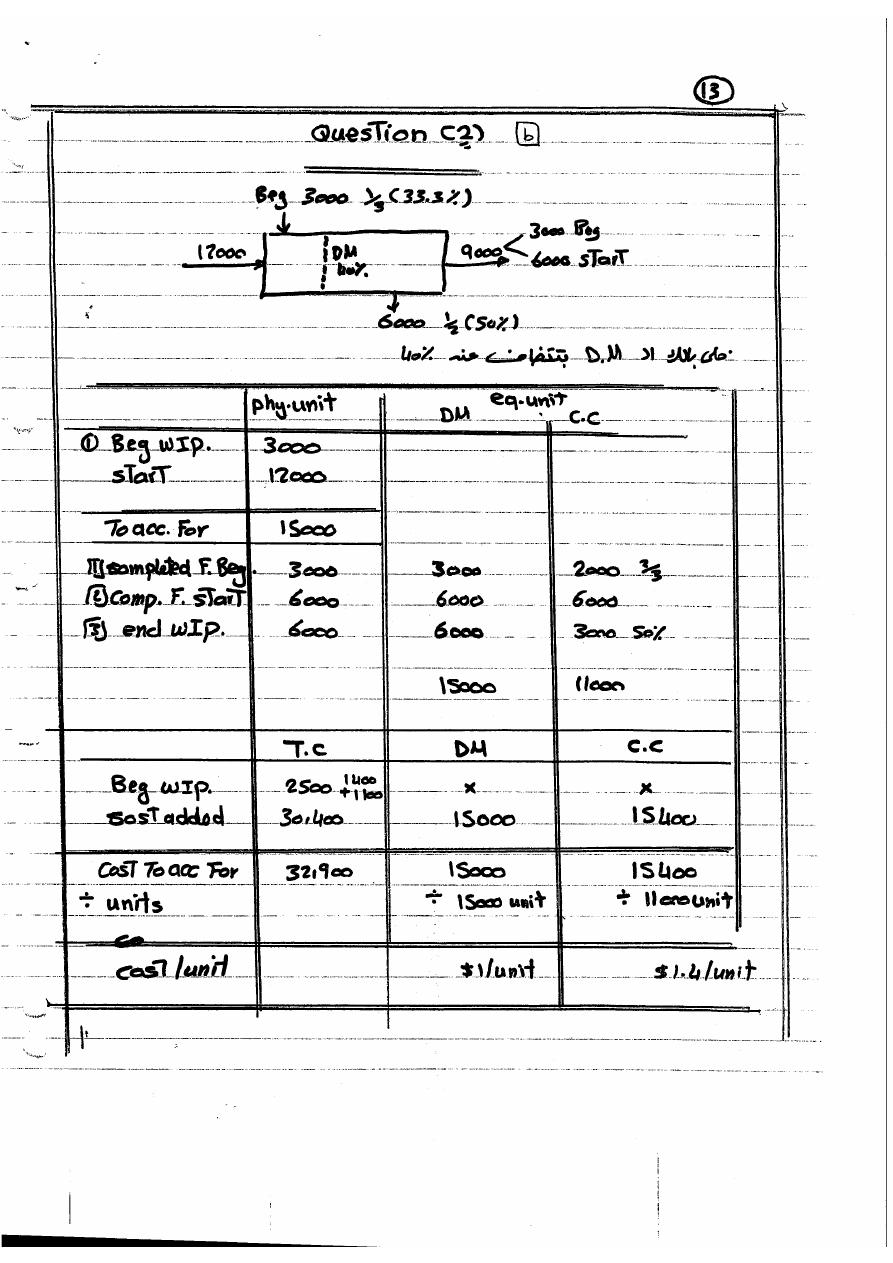 13
Question (2) b
Beg 3000 1/3 (33.3%)
12000 DM 40% 9000 3000 Beg
6000 start
6000 1/2 (50%)
خلى بالك ال D.M بتتضاف عند 40%
phy.unit eq.unit
DM C.C
① Beg WIP. 3000
start 12000
To acc. For 15000
1 completed F. Beg. 3000 3000 2000 2/3
2 Comp. F. start 6000 6000 6000
3 end WIP. 6000 6000 3000 50%
15000 11000
T.C DM C.C
Beg WIP. 2500 1400 +1100 × ×
cost added 30,400 15000 15400
Cost To acc For 32,900 15000 15400
÷ units ÷ 15000 unit ÷ 11000 unit
cost/unit $1/unit $1.4/unit